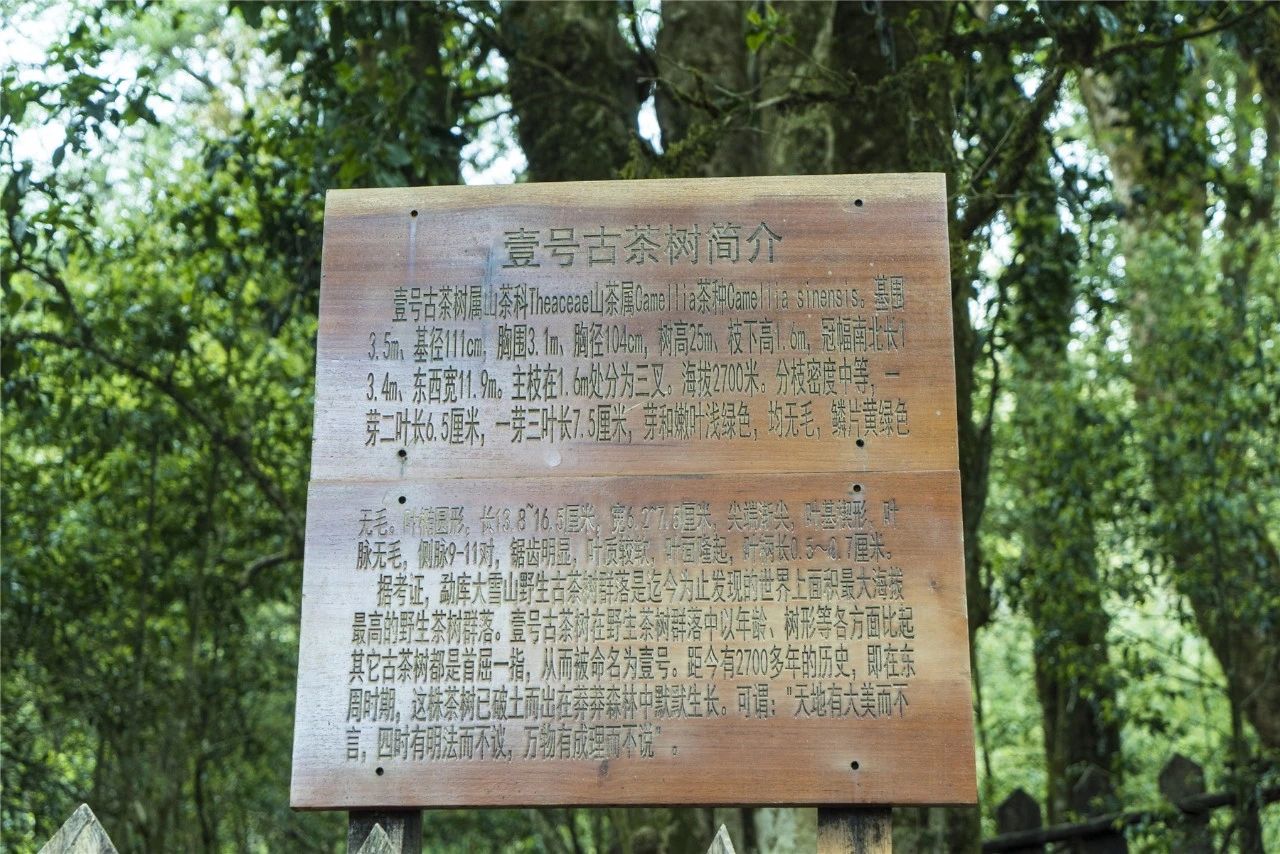 壹号古茶树简介
壹号古茶树属山茶科Theaceae山茶属Camellia茶种Camellia sinensis。基围
3.5m、基径111cm，胸围3.1m、胸径104cm，树高25m、枝下高1.6m，冠幅南北长1
3.4m、东西宽11.9m。主枝在1.6m处分为三叉。海拔2700米。分枝密度中等，一
芽二叶长6.5厘米，一芽三叶长7.5厘米，芽和嫩叶浅绿色，均无毛，鳞片黄绿色
无毛。叶椭圆形，长13.8~16.5厘米，宽6.2~7.5厘米，尖端渐尖，叶基楔形，叶
脉无毛，侧脉9-11对，锯齿明显，叶质较软，叶面隆起，叶柄长0.5～0.7厘米。
据考证，勐库大雪山野生古茶树群落是迄今为止发现的世界上面积最大海拔
最高的野生茶树群落。壹号古茶树在野生茶树群落中以年龄、树形等各方面比起
其它古茶树都是首屈一指，从而被命名为壹号。距今有2700多年的历史，即在东
周时期，这株茶树已破土而出在莽莽森林中默默生长。可谓："天地有大美而不
言，四时有明法而不议，万物有成理而不说"。